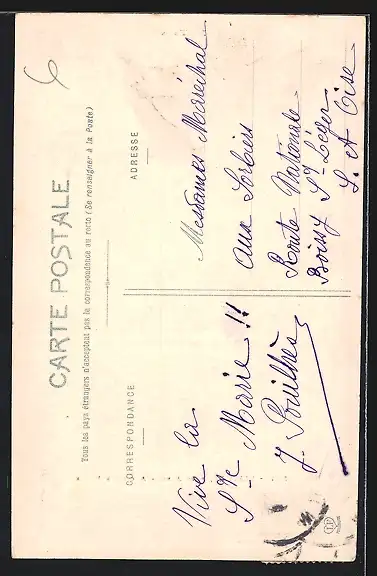 CARTE POSTALE
Tous les pays étrangers n'acceptent pas la correspondance au recto (Se renseigner à la Poste)
CORRESPONDANCE
ADRESSE
Vive la
Ste Marie!!
J. Pouilhès
Mesdames Maréchal
aux Sorbiers
Route Nationale
Boissy St Léger
S. et Oise
6